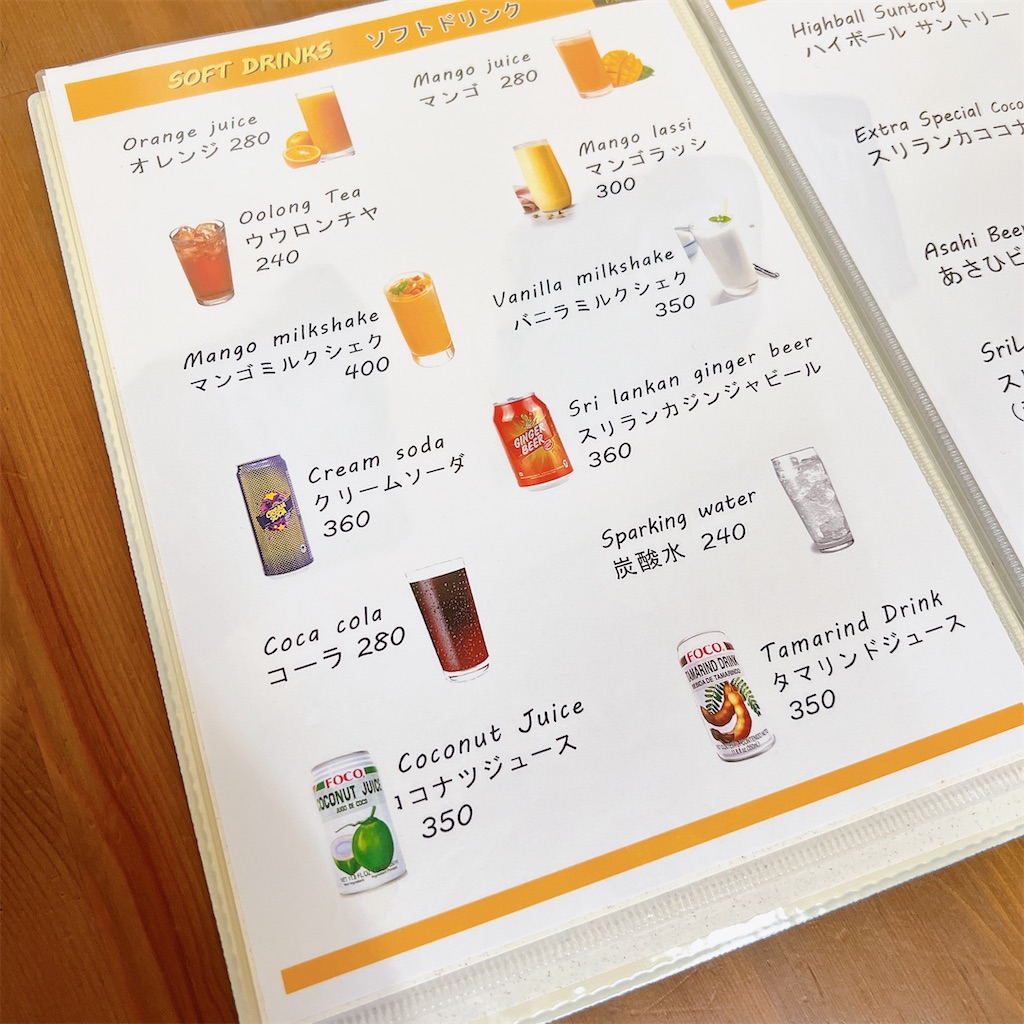 SOFT DRINKS ソフトドリンク
Orange juice
オレンジ 280
Mango juice
マンゴ 280
Oolong Tea
ウウロンチヤ
240
Mango lassi
マンゴラッシ
300
Mango milkshake
マンゴミルクシェク
400
Vanilla milkshake
バニラミルクシェク
350
Cream soda
クリームソーダ
360
Sri lankan ginger beer
スリランカジンジャビール
360
GINGER
BEER
Coca cola
コーラ 280
Sparking water
炭酸水 240
Coconut Juice
ココナツジュース
350
FOCO
COCONUT JUICE
JUGO DE COCO
Tamarind Drink
タマリンドジュース
350
FOCO
TAMARIND DRINK
BEBIDA DE TAMARINDO
Highball Suntory
ハイボール サントリー
Extra Special Coco
スリランカココナ
Asahi Beer
あさひビ
SriL
ス